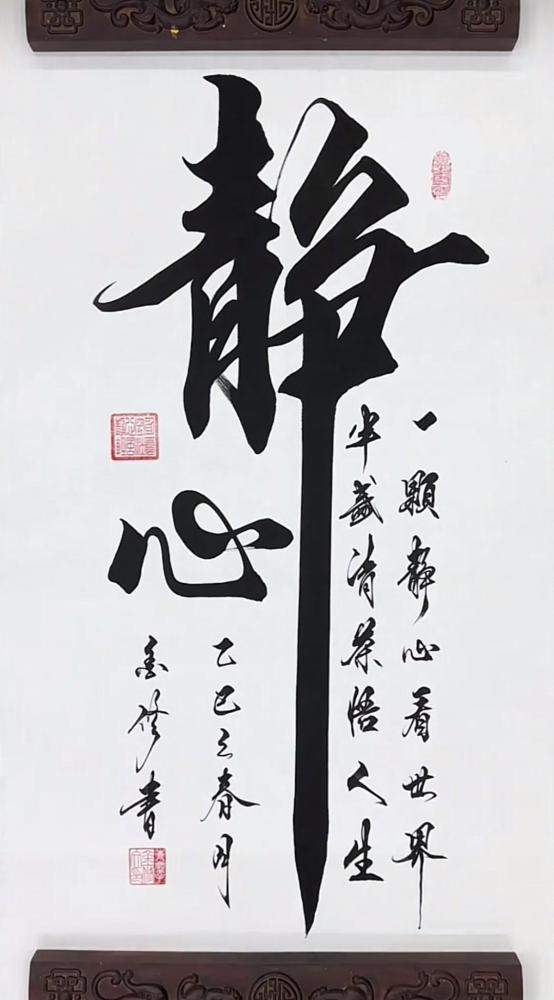 静心
一颗静心看世界
半盏清茶悟人生
乙巳之春月
书